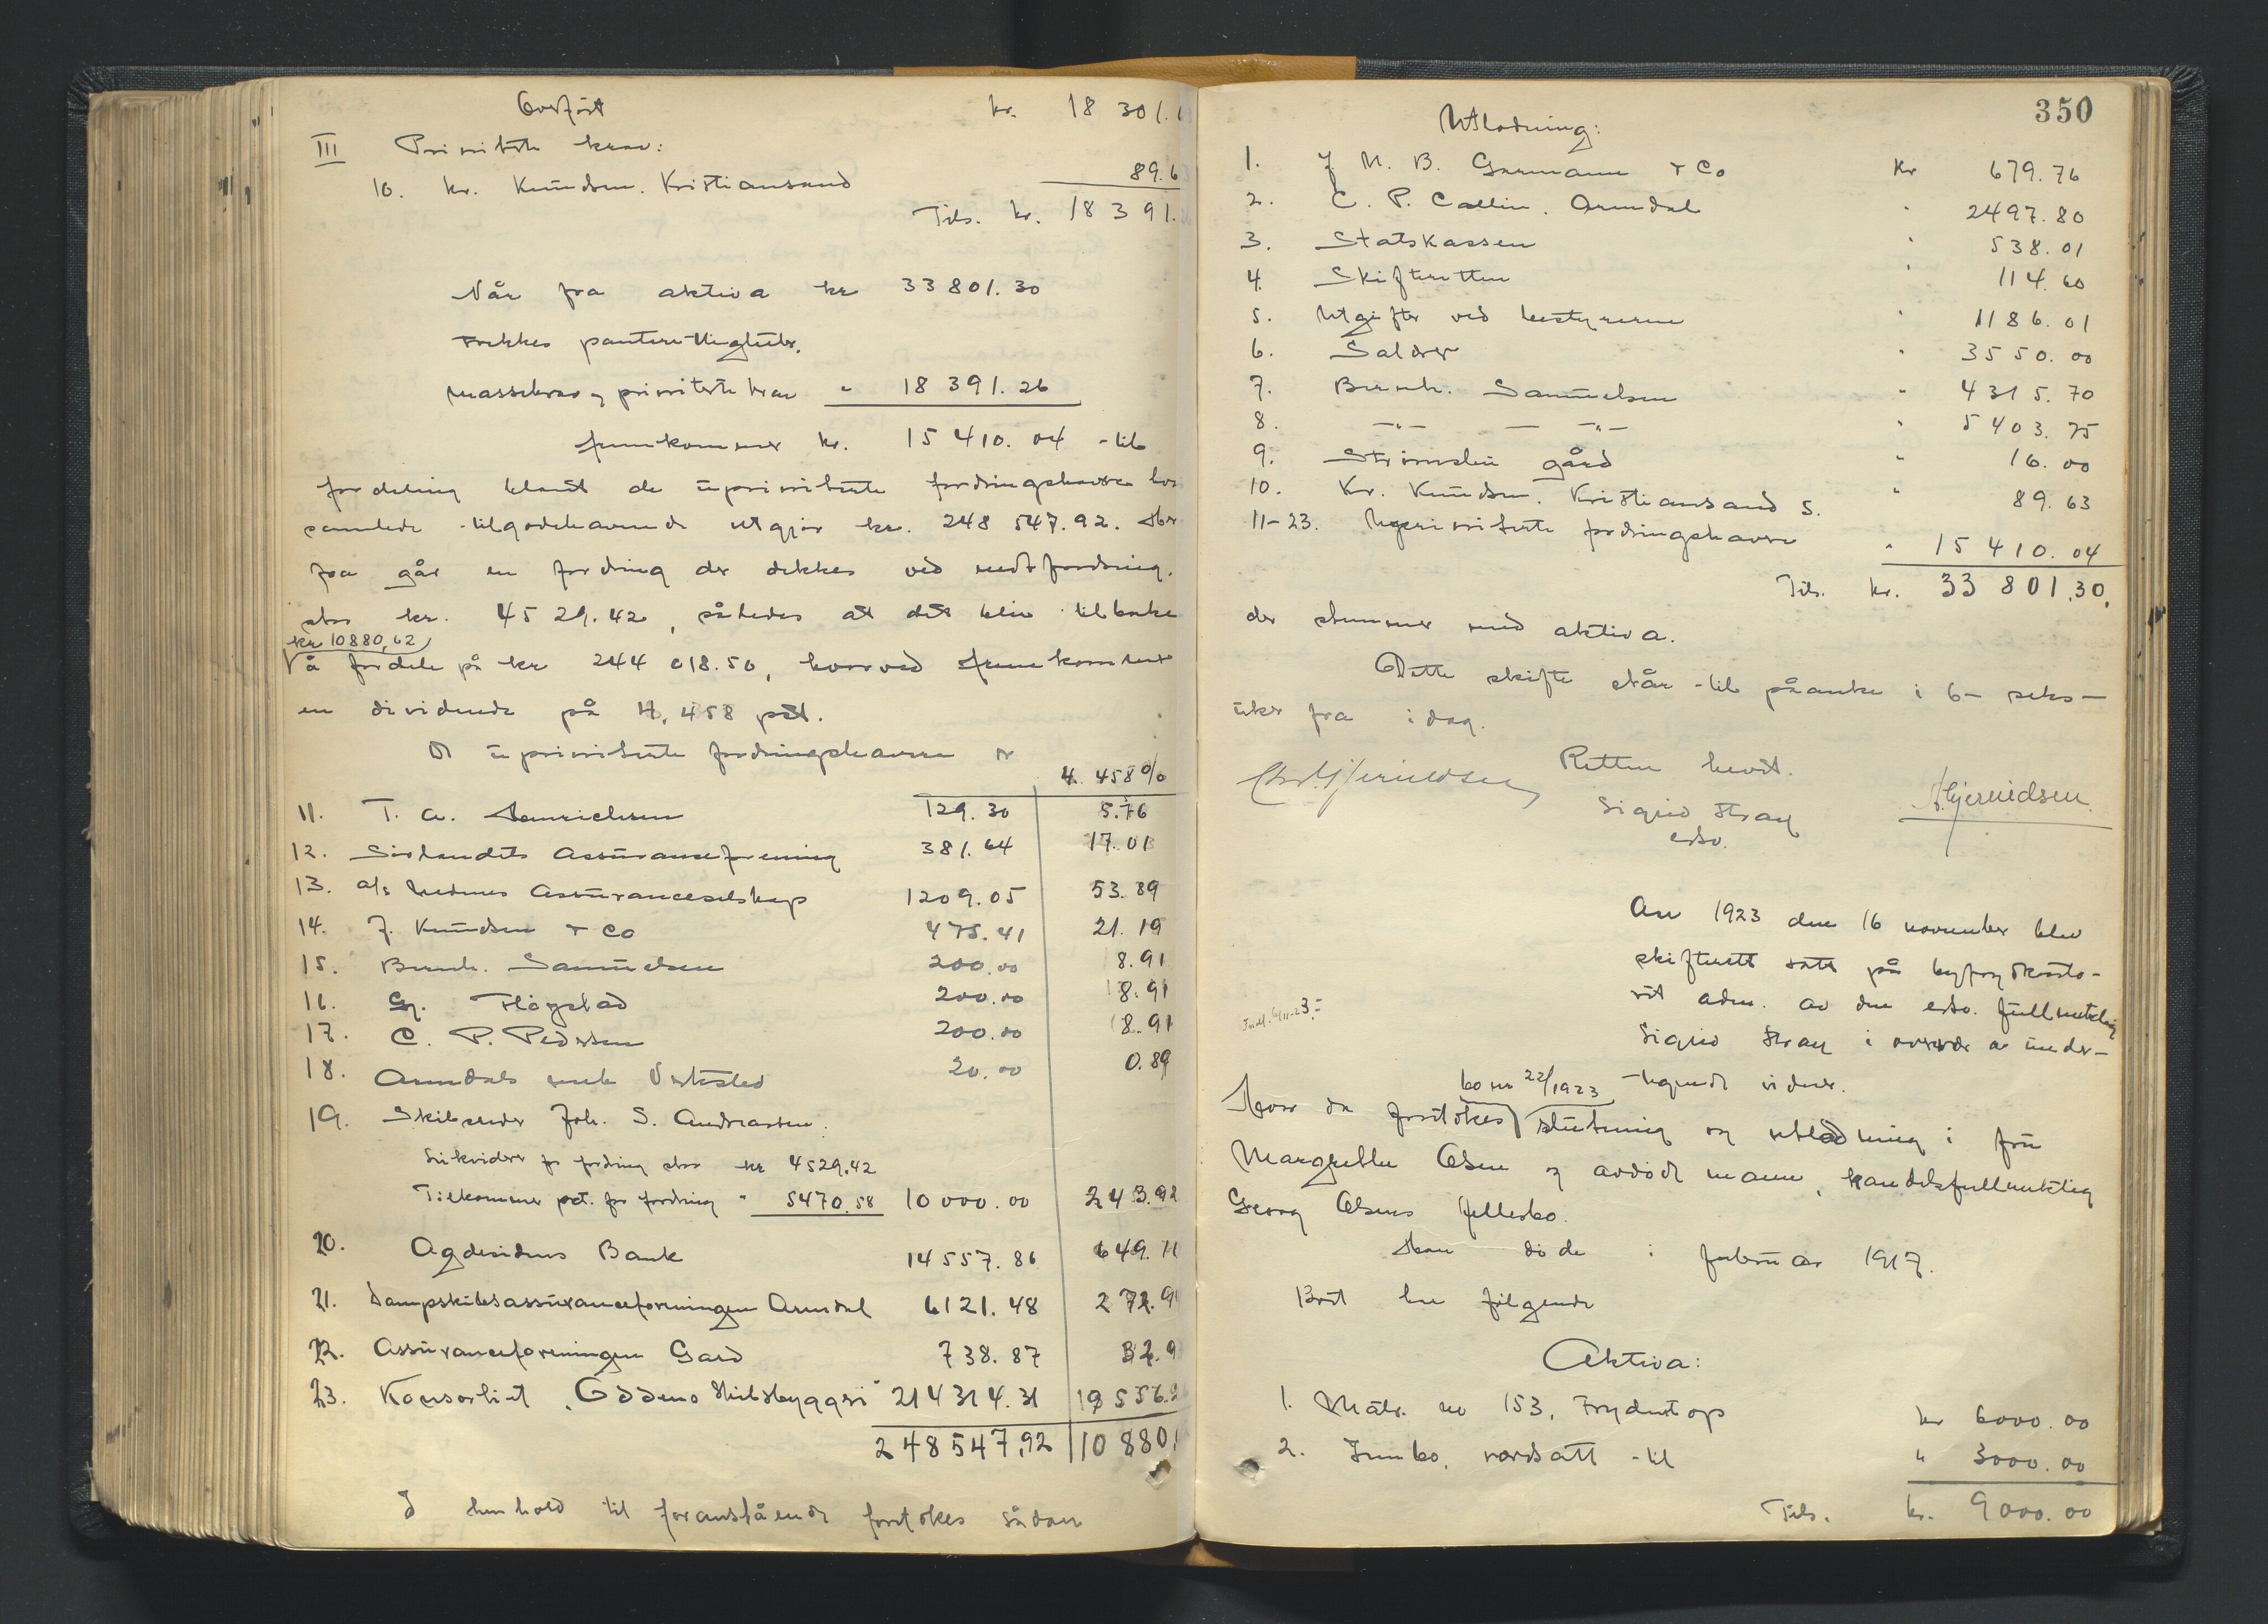 Overført kr. 18 301.
III Prioriterte krav:
10. Kr. Knudsen. Kristiansand 89.6
Tils. kr. 18 391.
Når fra aktiva kr 33801.30
trekkes panterettigheter,
massekrav og prioriterte krav " 18 391.26
fremkommer kr. 15 410.04 til
fordeling blandt de uprioriterte fordringshavere hvis
samlede tilgodehavende utgjør kr. 248 547.92. Her
fra går en fordring der dekkes ved motfordring,
stor kr. 4529.42, således at det blir tilbake
kr 10880,62
å fordele på kr 244 018.50, hvorved fremkommer
en dividende på 4,458 pct.
De uprioriterte fordringshavere er
4.458%
11. T. A. Henrichsen 129.30 5.76
12. Sørlandets Assuranceforening 381.64 17.01
13. a/s Assuranceselskap 1209.05 53.89
14. J. Knudsen & Co 475.41 21.19
15. Bernh. Samuelsen 200.00 8.91
16. G. Fløystad 200.00 8.91
17. C. P. Pedersen 200.00 8.91
18. Arendals mek Verksted 20.00 0.89
19. Skibsreder Joh. S. Andreassen:
Likviderer for fordring stor kr 4529.42
Tilkommer pct. for fordring " 5470.58 10000.00 243.92
20. Agdesidens Bank 14557.86 649.
21. Dampskibsassuranceforeningen Arendal 6121.48 272.9
22. Assuranceforeningen Gard 738.87 32.9
23. Konsortiet "Oddens Skibsbyggeri" 214314.31 9556.
248547,92 10 880,
I henhold til foranstående foretokes sådan
350
Utlodning:
1. J M. B. Garmann & Co Kr 679.76
2. C. P. Callin. Arendal " 2497.80
3. Statskassen " 538.01
4. Skifteretten " 114.60
5. Utgifter ved bestyrerne " 1186.01
6. Salærer " 3550.00
7. Bernh. Samuelsen " 4315.70
8. —"— — —"— " 5403.75
9. Strømslei gård " 16.00
10. Kr. Knudsen. Kristiansand S. " 89.63
11-23. Uprioriterte fordringshavere " 15 410.04
Tils. kr. 33 801,30,
der stemmer med aktiva.
Dette skifte står til påanke i 6- seks-
uker fra idag.
Retten hevet.
Sigrid Stray
edsv.
Gjeruldsen
An 1923 den 16 november blev
skifterett satt på byfogdkonto-
ret adm. av den edsv. fullmektig
Sigrid Stray i overvær av under-
tegnede vidner.
bo nr 22/1923
Hvor da foretokes slutning og utlodning i fru
Margrethe Olsen og avdøde mann, handelsfullmektig
Georg Olsens fellesbo.
Han døde i februar 1917.
Boet har følgende
Aktiva:
1. Matr. no 153, Frydentop kr 6000.00
2. Innbo, verdsatt til " 3000.00
Tils. kr. 9000.00